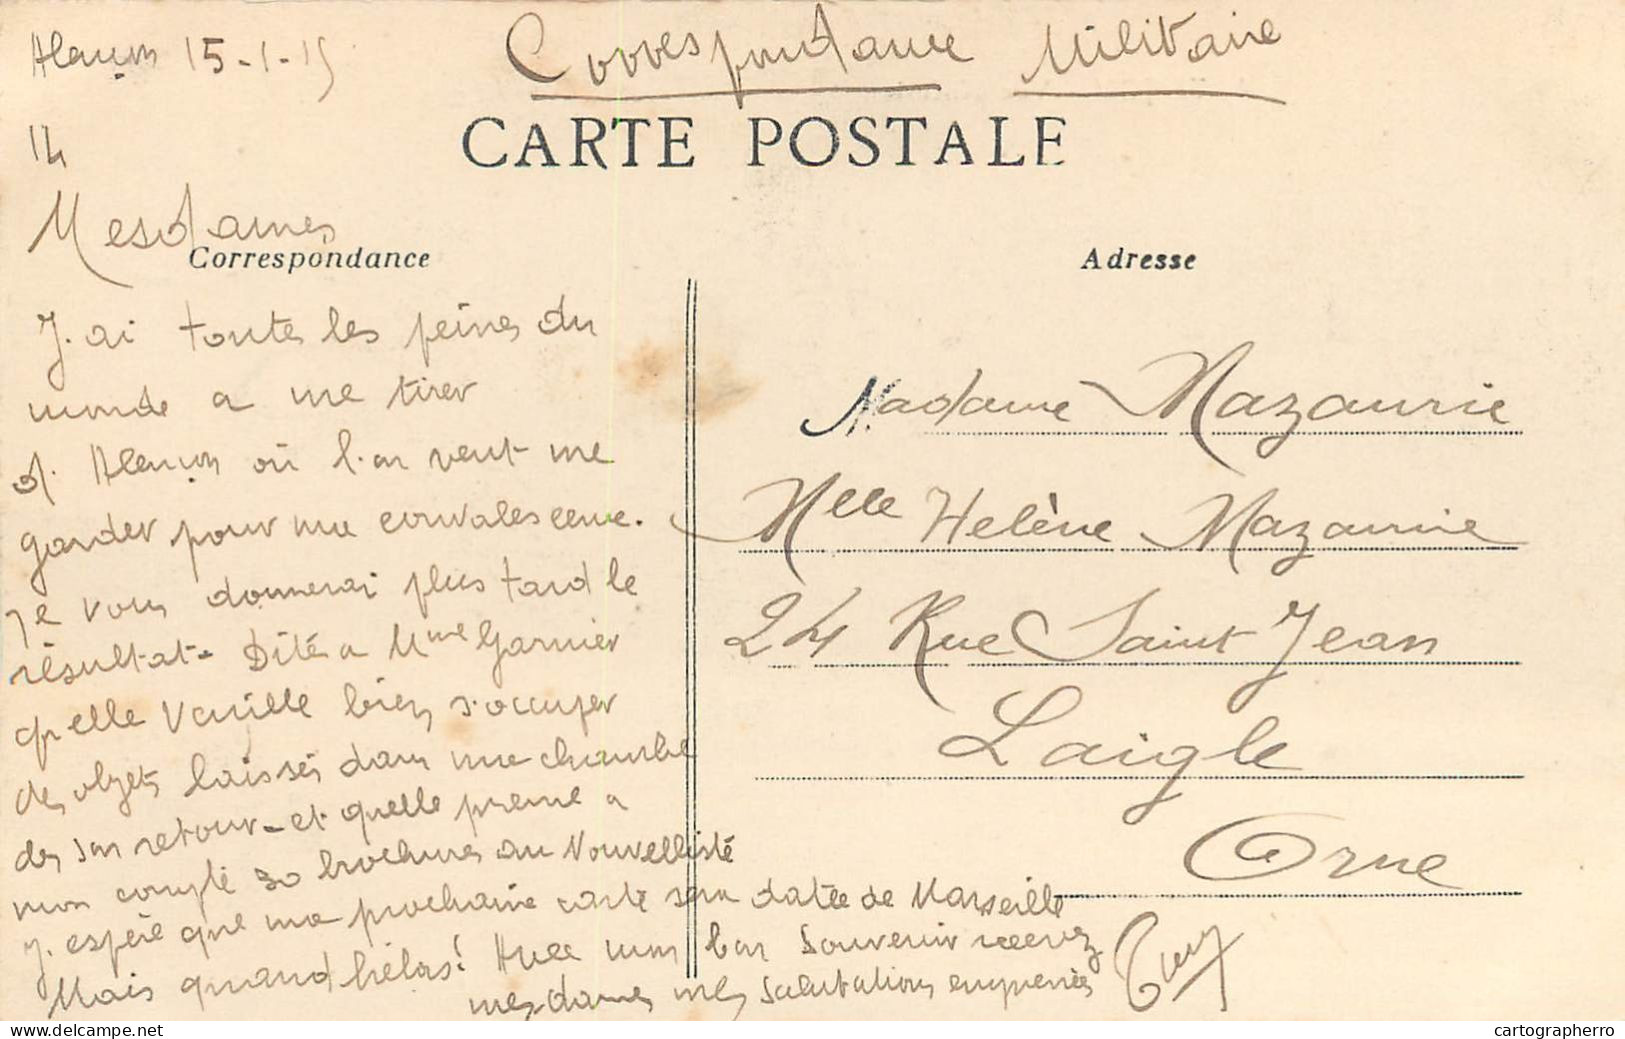 Alençon 15-1-15
Correspondance Militaire
14
CARTE POSTALE
Mesdames
Correspondance
J'ai toutes les peines du
monde a me tirer
d'Alençon où l'on veut me
garder pour ma convalescence.
je vous donnerai plus tard le
résultat. Dité a Mme Garnier
qu'elle veuille bien s'occuper
des objets laissés dans ma chambre
des son retour - et quelle prenne a
mon compte 30 brochures au Nouvellisté
J'espère que ma prochaine carte sera datée de Marseille
Mais quand hélas! Avec mon bon souvenir recevez
mesdames mes salutations empressées
Adresse
Madame Mazaurie
Melle Helène Mazaurie
24 Rue Saint Jean
Laigle
Orne
delcampe.net
cartographerro